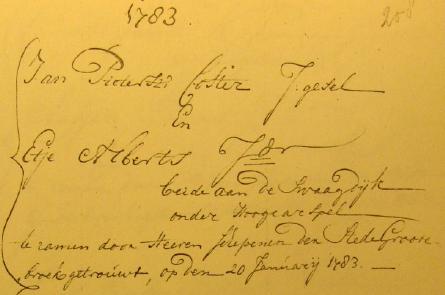 1783.
208
Jan Pietersz Coster J:gesel
En
Etje Alberts J:Dr
beide aan De Swaagdyk
onder Hoogcarspel
te zamen door Heeren Schepenen den Stede Groote-
broek getrouwt, op den 20 January 1783.